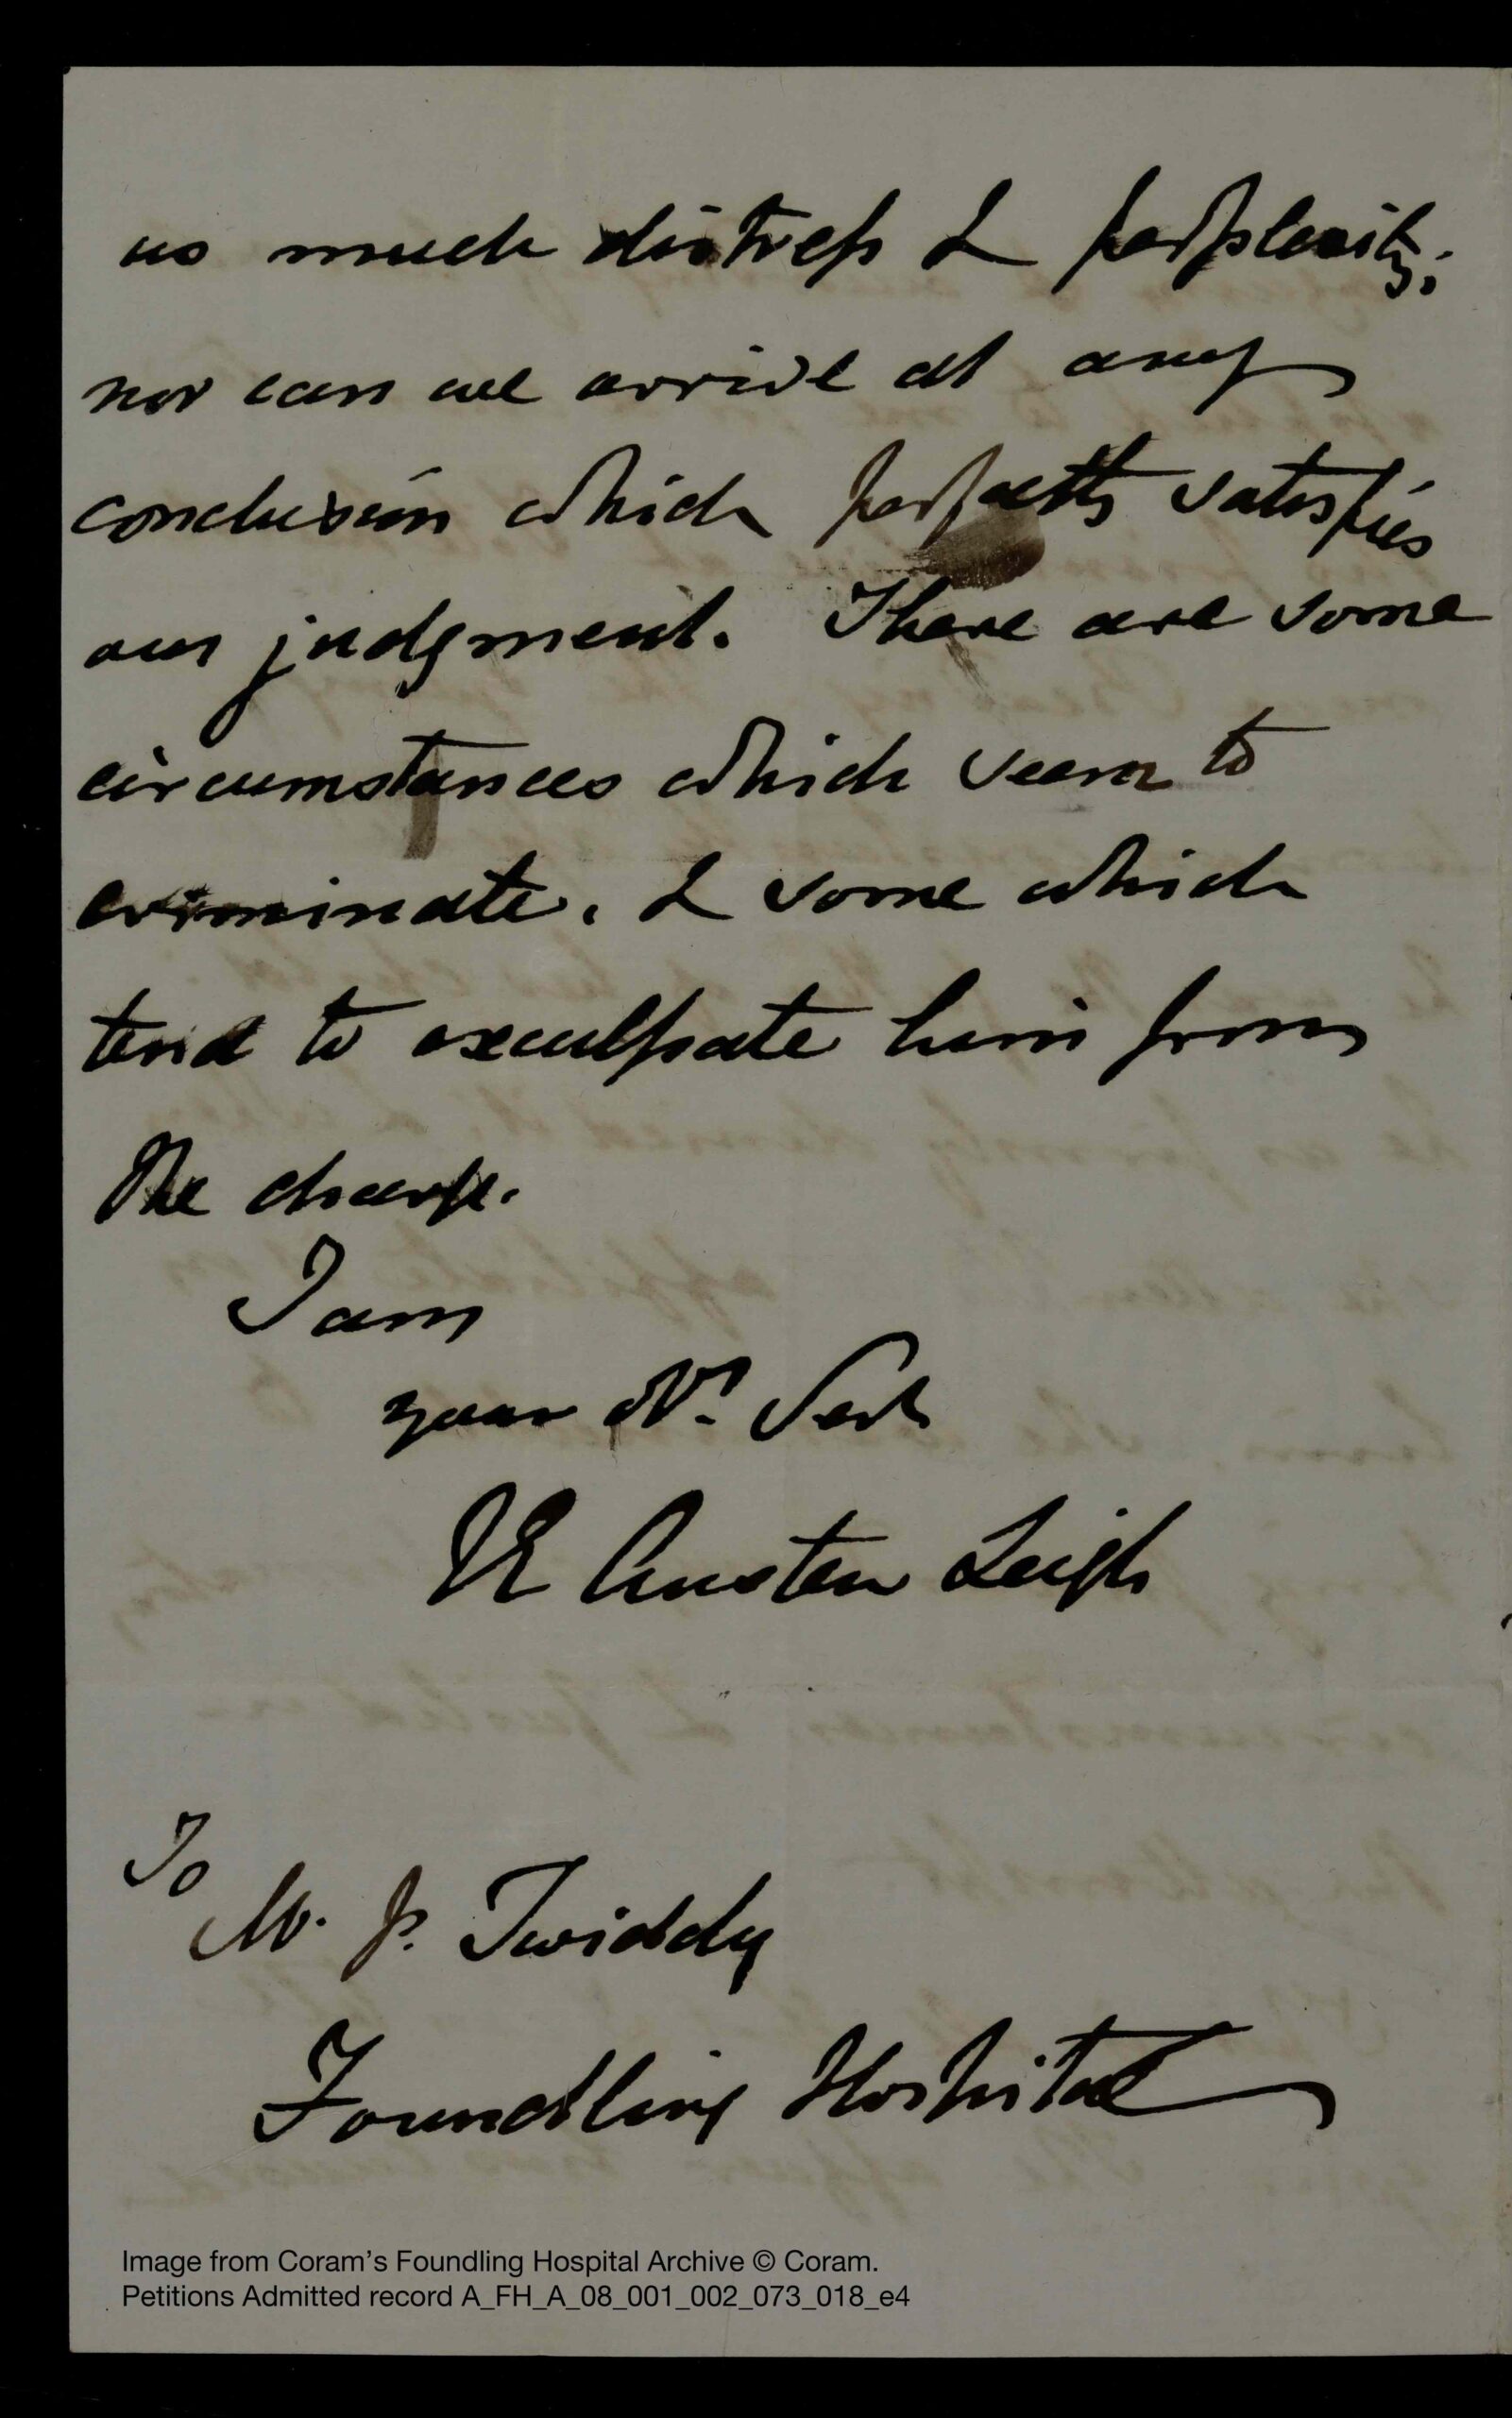 us much distress & perplexity;
nor can we arrive at any
conclusion which perfectly satisfies
our judgment. There are some
circumstances which seem to
criminate, & some which
tend to exculpate him from
the charge.
I am
your Ob.t Ser.t
JE Austen Leigh
To
Mr. J. Twiddy
Foundling Hospital
Image from Coram's Foundling Hospital Archive © Coram.
Petitions Admitted record A_FH_A_08_001_002_073_018_e4